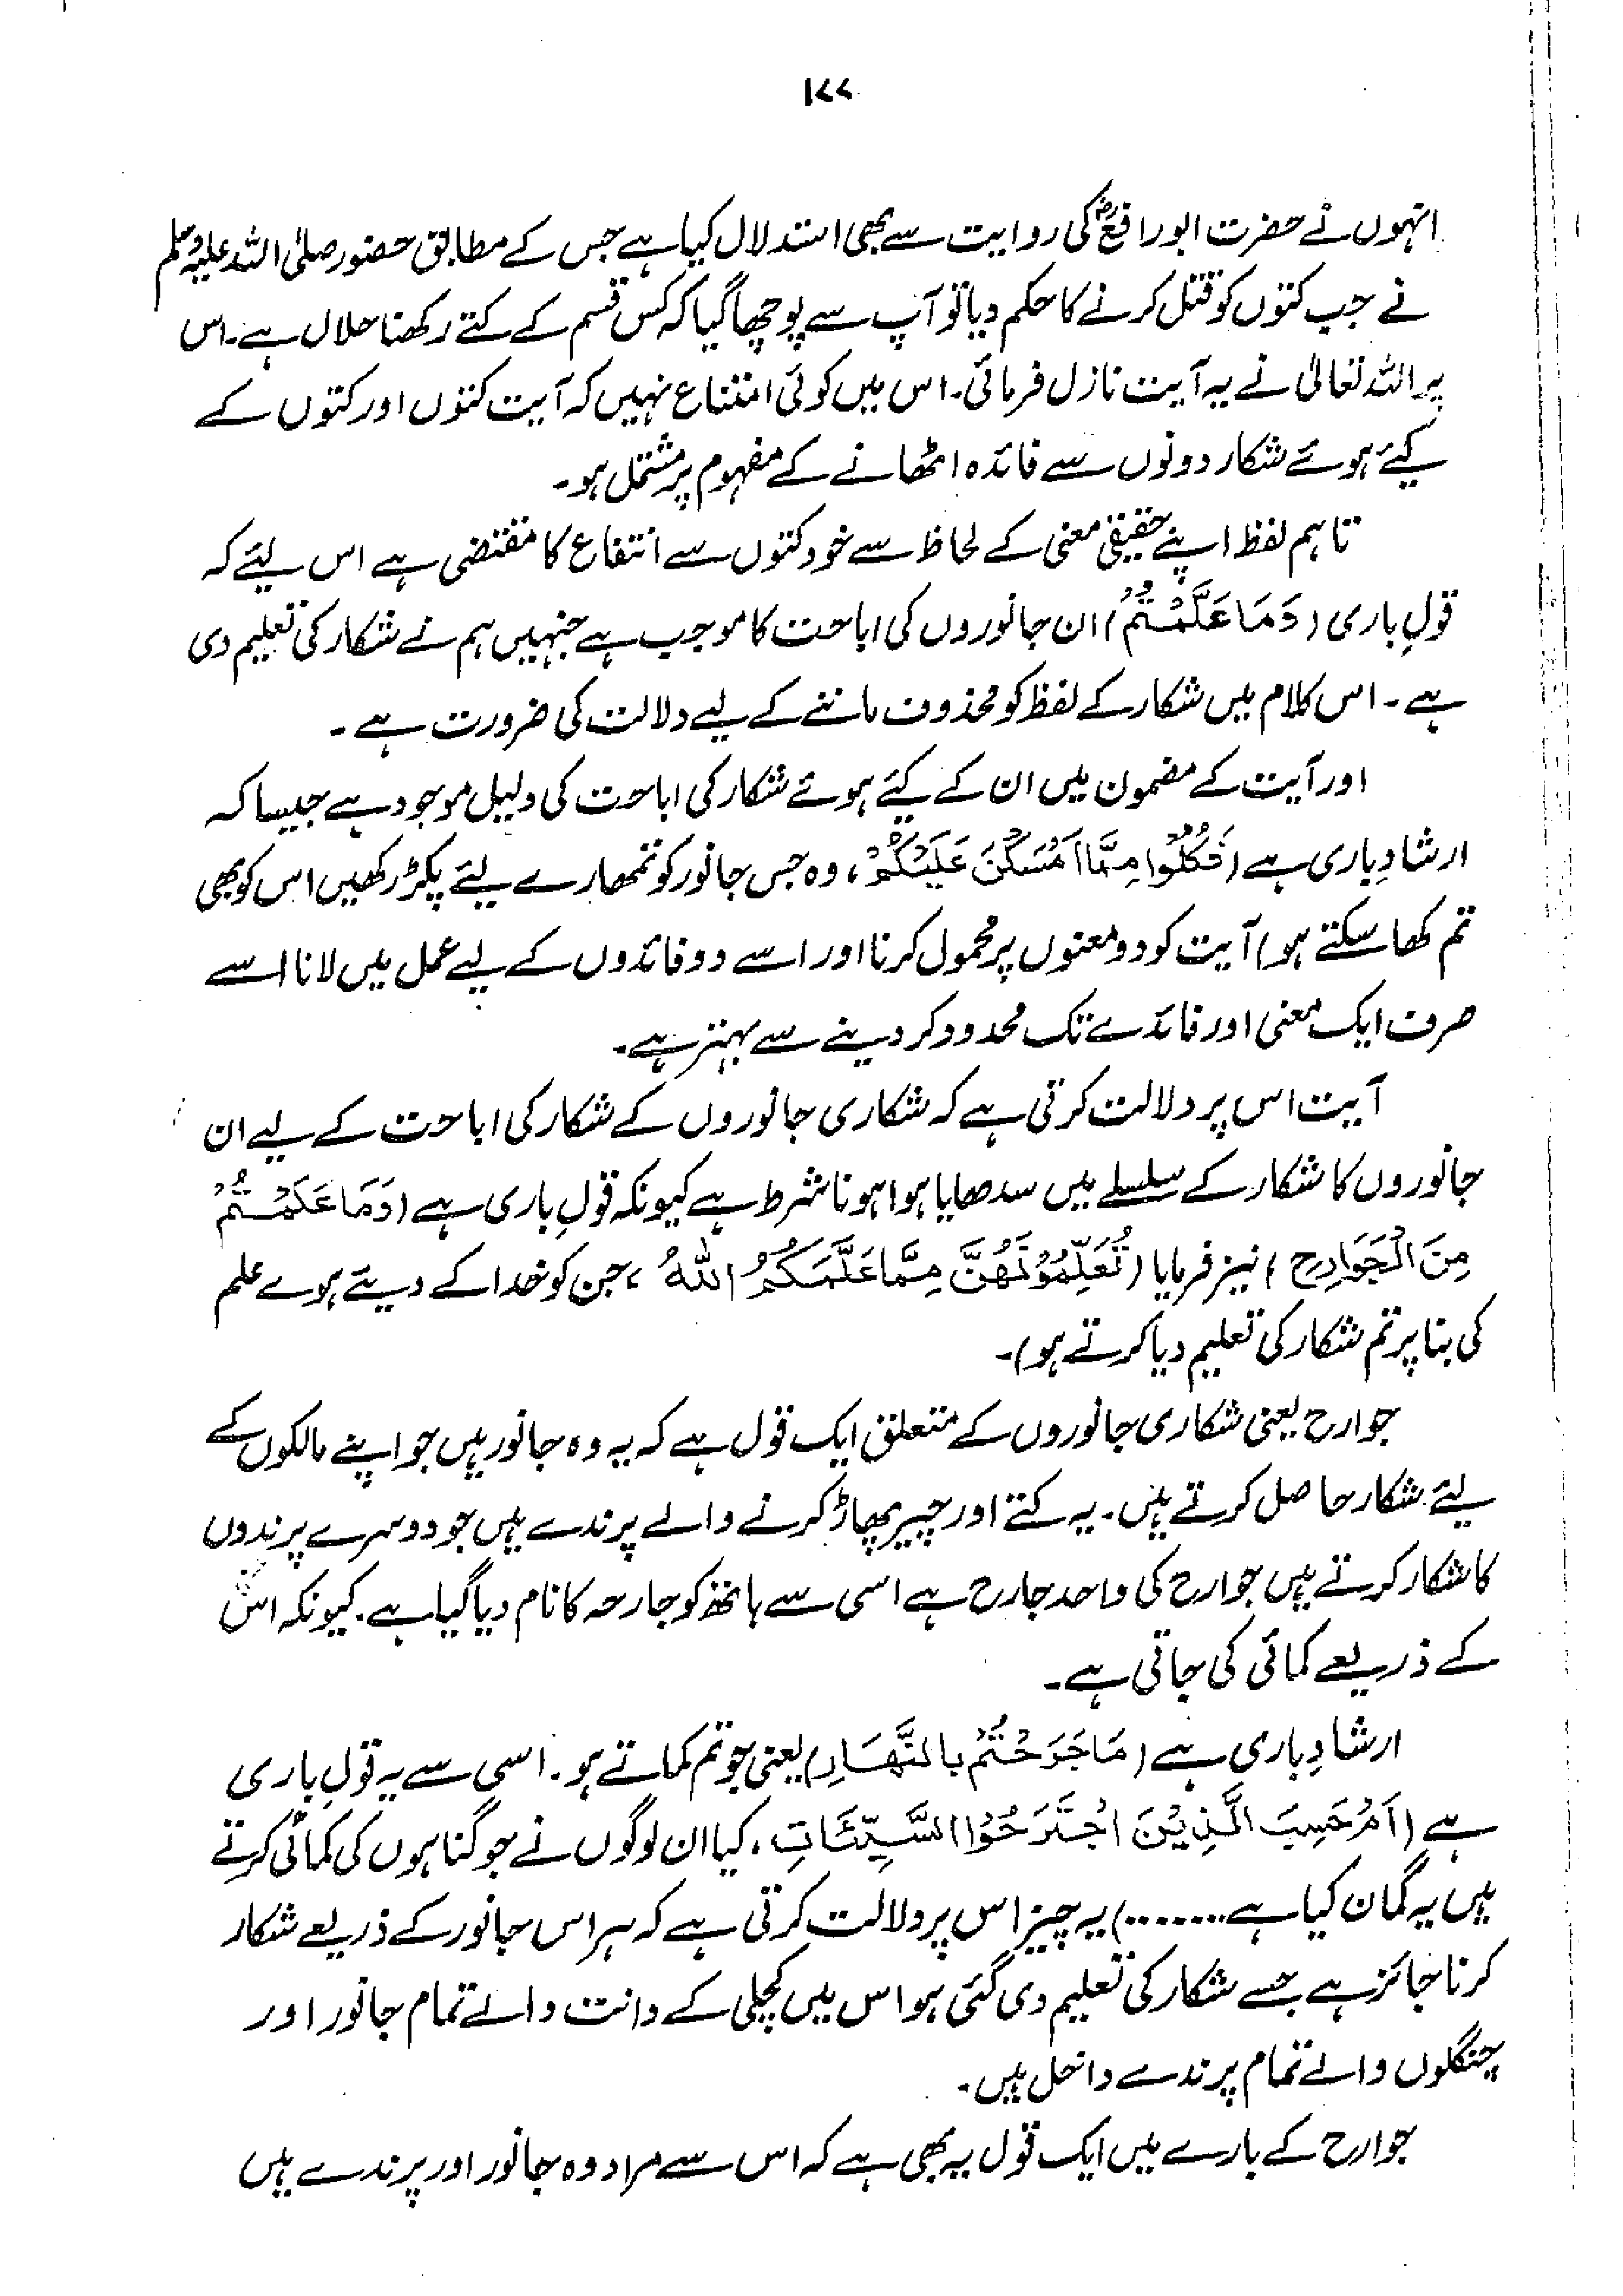 ۱۷۷
انہوں نے حضرت ابو رافعؓ کی روایت سے بھی استدلال کیا ہے جس کے مطابق حضور صلی اللہ علیہ وسلم
نے جب کتوں کو قتل کرنے کا حکم دیا تو آپ سے پوچھا گیا کہ کس قسم کے کتے رکھنا حلال ہے۔ اس
پر اللہ تعالیٰ نے یہ آیت نازل فرمائی۔ اس میں کوئی امتناع نہیں کہ آیت کتوں اور کتوں کے
کیے ہوئے شکار دونوں سے فائدہ اٹھانے کے مفہوم پر مشتمل ہو۔
تاہم لفظ اپنے حقیقی معنی کے لحاظ سے خود کتوں سے انتفاع کا مقتضی ہے اس لیئے کہ
قولِ باری (وَمَا عَلَّمْتُمْ) ان جانوروں کی اباحت کا موجب ہے جنہیں ہم نے شکار کی تعلیم دی
ہے۔ اس کلام میں شکار کے لفظ کو محذوف ماننے کے لیے دلالت کی ضرورت ہے۔
اور آیت کے مضمون میں ان کے کیے ہوئے شکار کی اباحت کی دلیل موجود ہے جیسا کہ
ارشادِ باری ہے (فَكُلُوْا مِمَّا اَمْسَكْنَ عَلَيْكُمْ، وہ جس جانور کو تمھارے لیئے پکڑ رکھیں اس کو بھی
تم کھا سکتے ہو) آیت کو دو معنوں پر محمول کرنا اور اسے دو فائدوں کے لیے عمل میں لانا اسے
صرف ایک معنی اور فائدے تک محدود کر دینے سے بہتر ہے۔
آیت اس پر دلالت کرتی ہے کہ شکاری جانوروں کے شکار کی اباحت کے لیے ان
جانوروں کا شکار کے سلسلے میں سدھایا ہوا ہونا شرط ہے کیونکہ قولِ باری ہے (وَمَا عَلَّمْتُمْ
مِنَ الْجَوَارِحِ) نیز فرمایا (تُعَلِّمُوْنَهُنَّ مِمَّا عَلَّمَكُمُ اللّٰهُ، جن کو خدا کے دیئے ہوے علم
کی بنا پر تم شکار کی تعلیم دیا کرتے ہو)۔
جوارح یعنی شکاری جانوروں کے متعلق ایک قول ہے کہ یہ وہ جانور ہیں جو اپنے مالکوں کے
لیئے شکار حاصل کرتے ہیں۔ یہ کتے اور چیر پھاڑ کرنے والے پرندے ہیں جو دوسرے پرندوں
کا شکار کرتے ہیں جوارح کی واحد جارح ہے اسی سے ہاتھ کو جارحہ کا نام دیا گیا ہے۔ کیونکہ اس
کے ذریعے کمائی کی جاتی ہے۔
ارشادِ باری ہے (مَا جَرَحْتُمْ بِالنَّهَارِ) یعنی جو تم کماتے ہو۔ اسی سے یہ قولِ باری
ہے (اَمْ حَسِبَ الَّذِيْنَ اجْتَرَحُوا السَّيِّئَاتِ، کیا ان لوگوں نے جو گناہوں کی کمائی کرتے
ہیں یہ گمان کیا ہے.......) یہ چیز اس پر دلالت کرتی ہے کہ ہر اس جانور کے ذریعے شکار
کرنا جائز ہے جسے شکار کی تعلیم دی گئی ہو اس میں کچلی کے دانت والے تمام جانور اور
چنگلوں والے تمام پرندے داخل ہیں۔
جوارح کے بارے میں ایک قول یہ بھی ہے کہ اس سے مراد وہ جانور اور پرندے ہیں